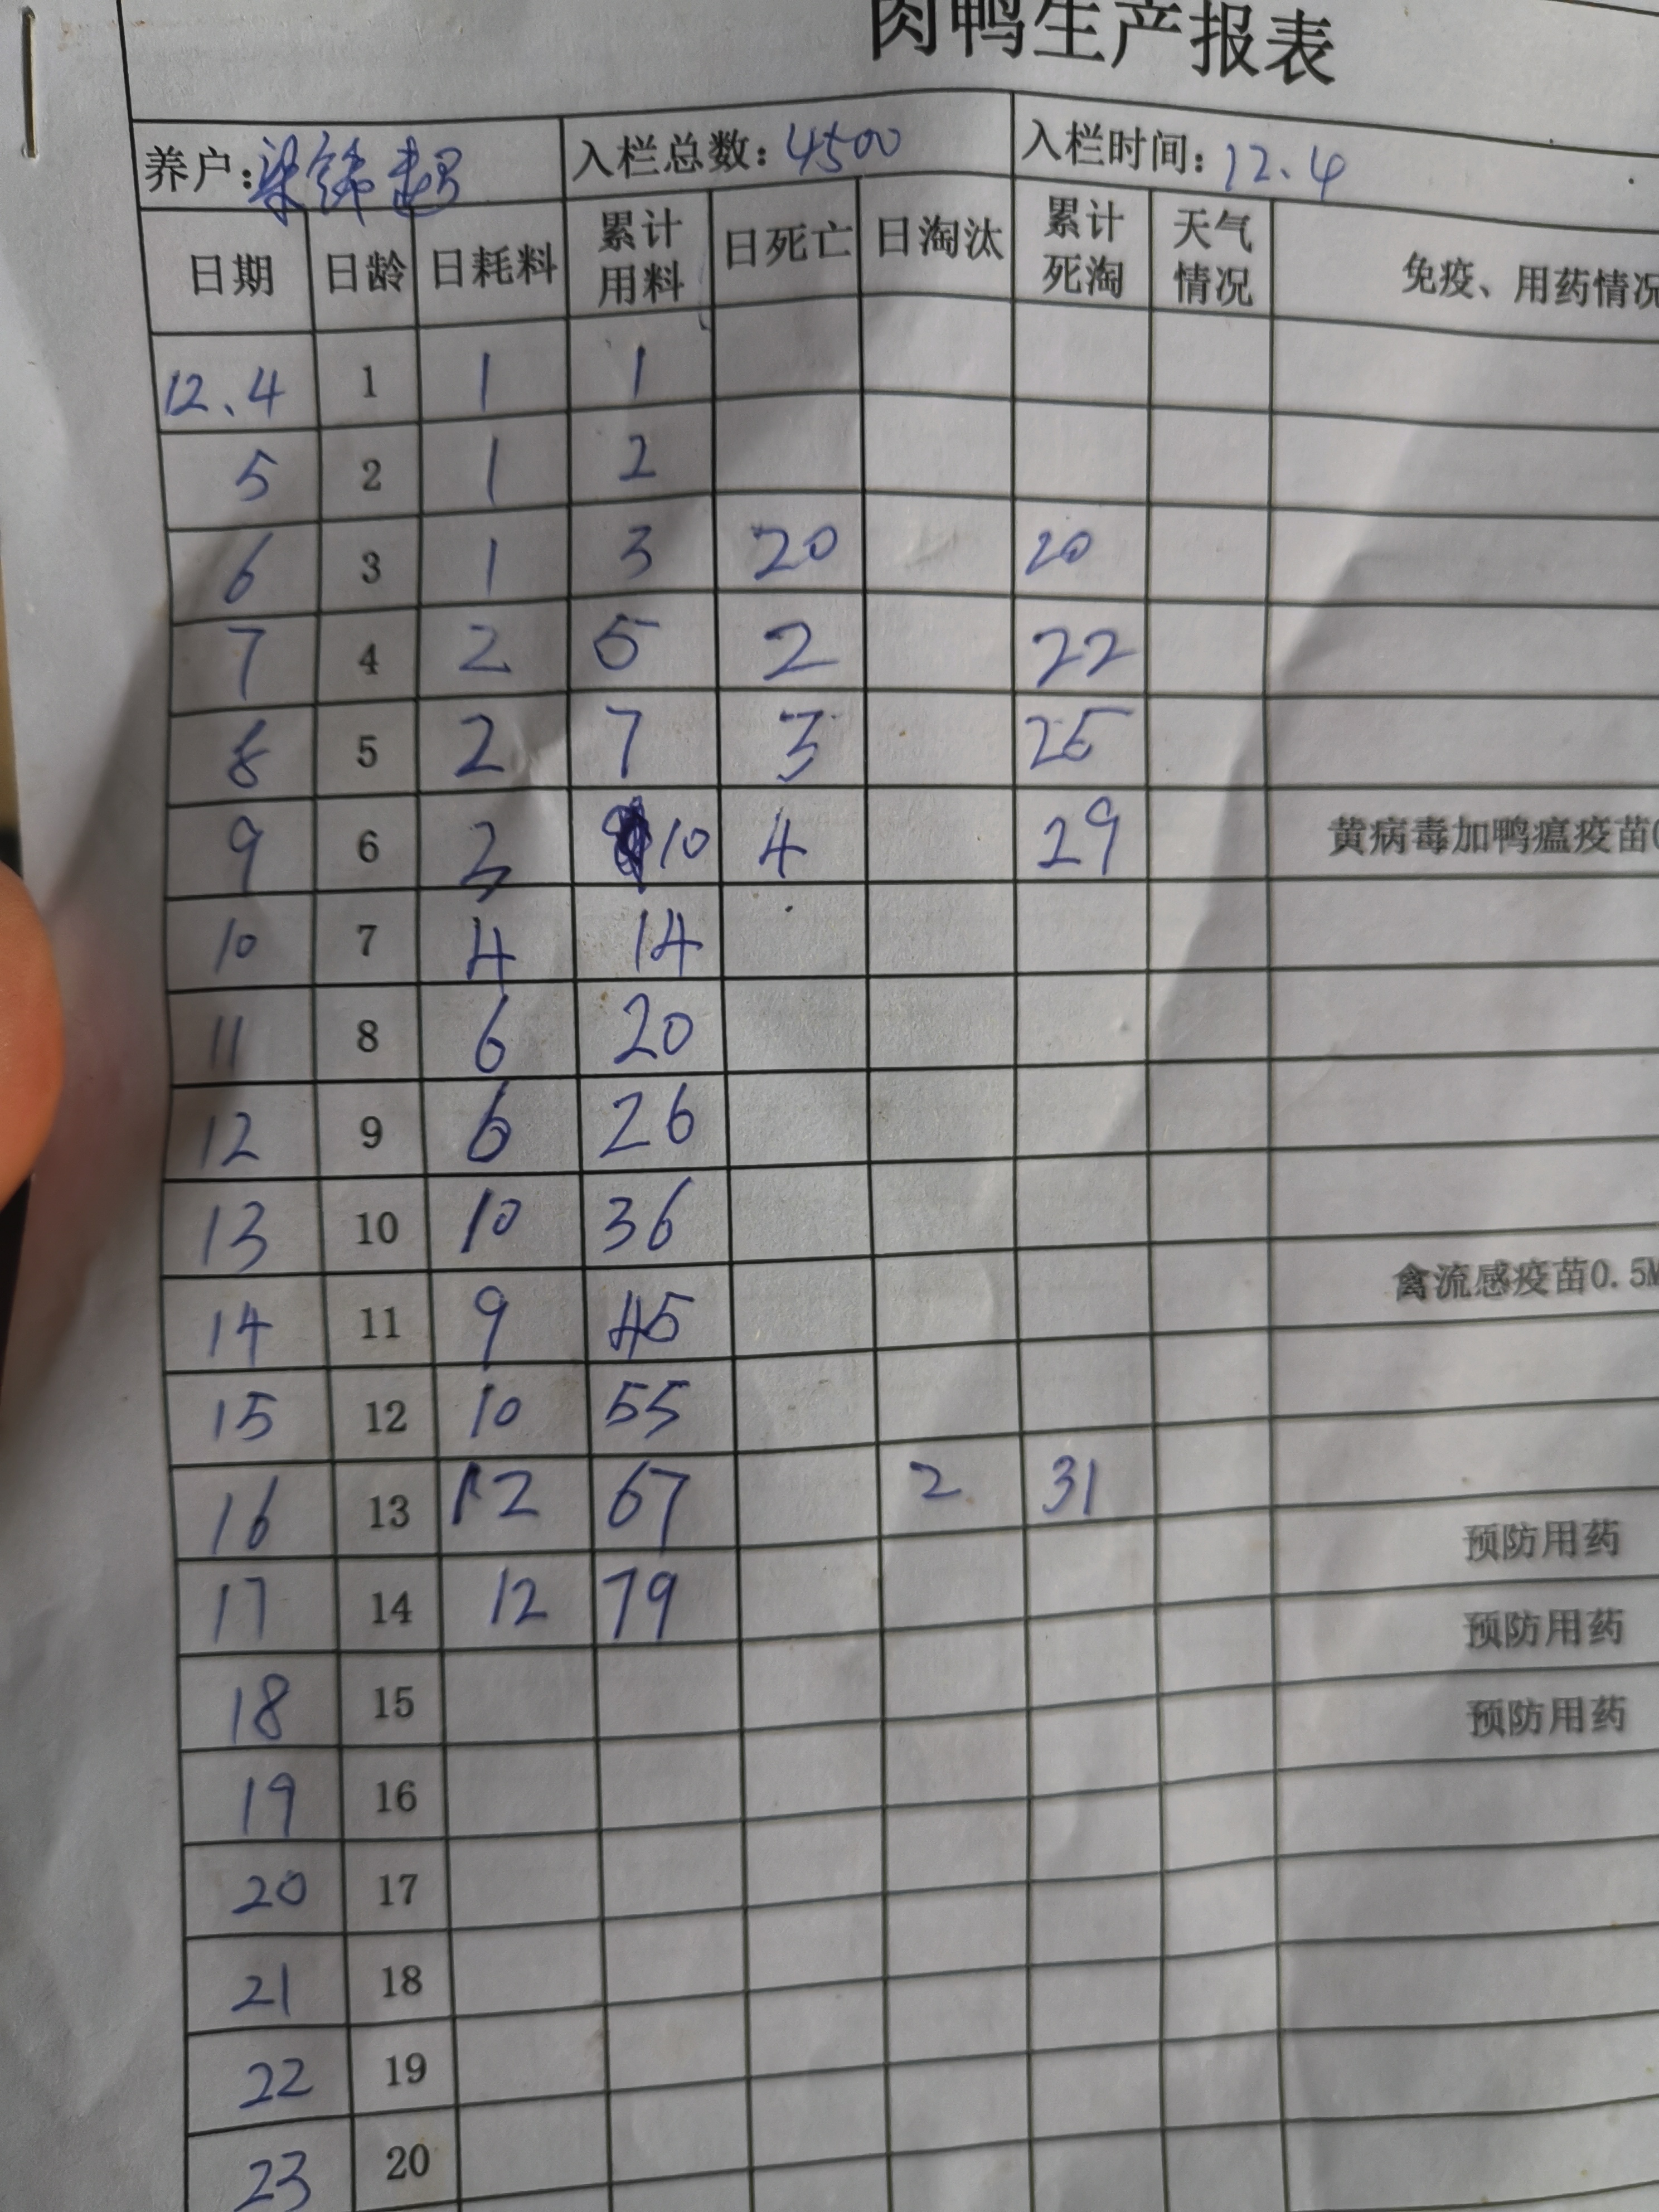 肉鸭生产报表
养户: 梁 超 入栏总数: 4500 入栏时间: 12.4
日期 日龄 日耗料 累计用料 日死亡 日淘汰 累计死淘 天气情况 免疫、用药情况
12.4 1 1 1
5 2 1 2
6 3 1 3 20 20
7 4 2 5 2 22
8 5 2 7 3 25
9 6 3 10 4 29 黄病毒加鸭瘟疫苗
10 7 4 14
11 8 6 20
12 9 6 26
13 10 10 36
14 11 9 45 禽流感疫苗0.5M
15 12 10 55
16 13 12 67 2 31
17 14 12 79 预防用药
18 15 预防用药
19 16 预防用药
20 17
21 18
22 19
23 20